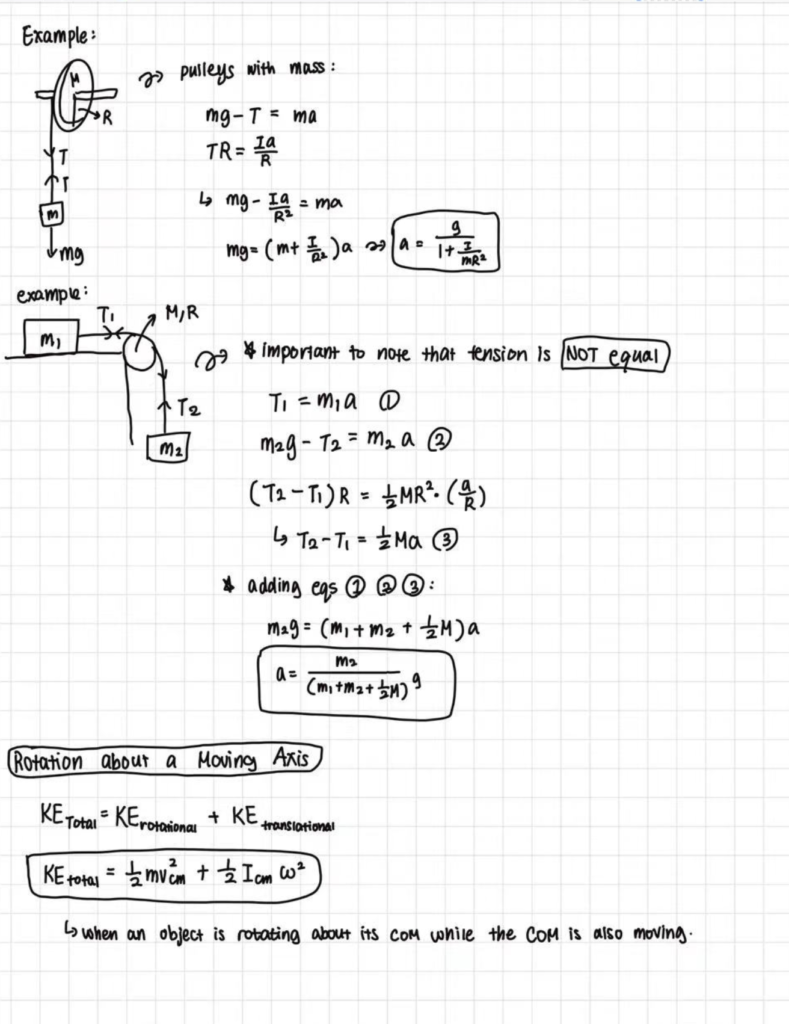 Example:
M
R
T
T
m
mg
↝ pulleys with mass:
mg - T = ma
TR = Ia/R
↳ mg - Ia/R² = ma
mg = (m + I/R²)a ↝ a = g/(1 + I/mR²)
example:
m₁
T₁
M,R
T₂
m₂
↝ * important to note that tension is NOT equal
T₁ = m₁a ①
m₂g - T₂ = m₂a ②
(T₂ - T₁)R = ½MR²·(a/R)
↳ T₂ - T₁ = ½Ma ③
* adding eqs ① ② ③:
m₂g = (m₁ + m₂ + ½M)a
a = m₂/(m₁+m₂+½M) g
Rotation about a Moving Axis
KE Total = KE rotational + KE translational
KE total = ½mv²cm + ½Icm ω²
↳ when an object is rotating about its COM while the COM is also moving.